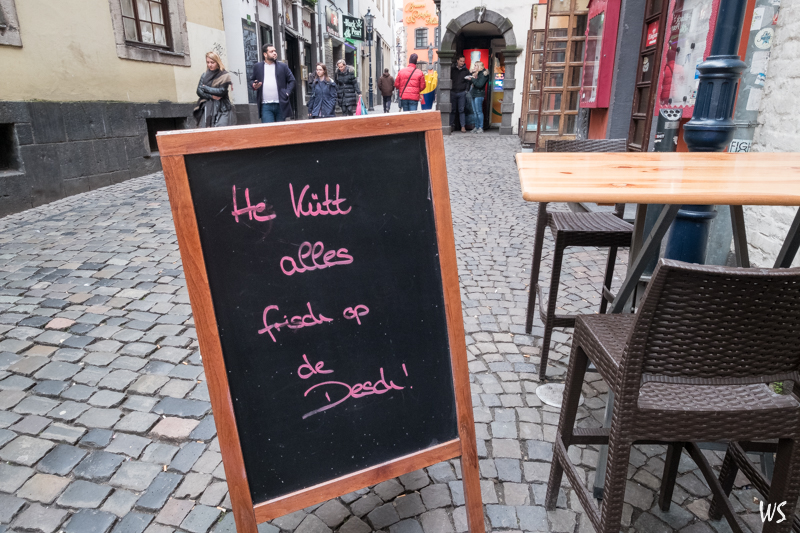 He Kütt
alles
frisch op
de
Desch!
WS